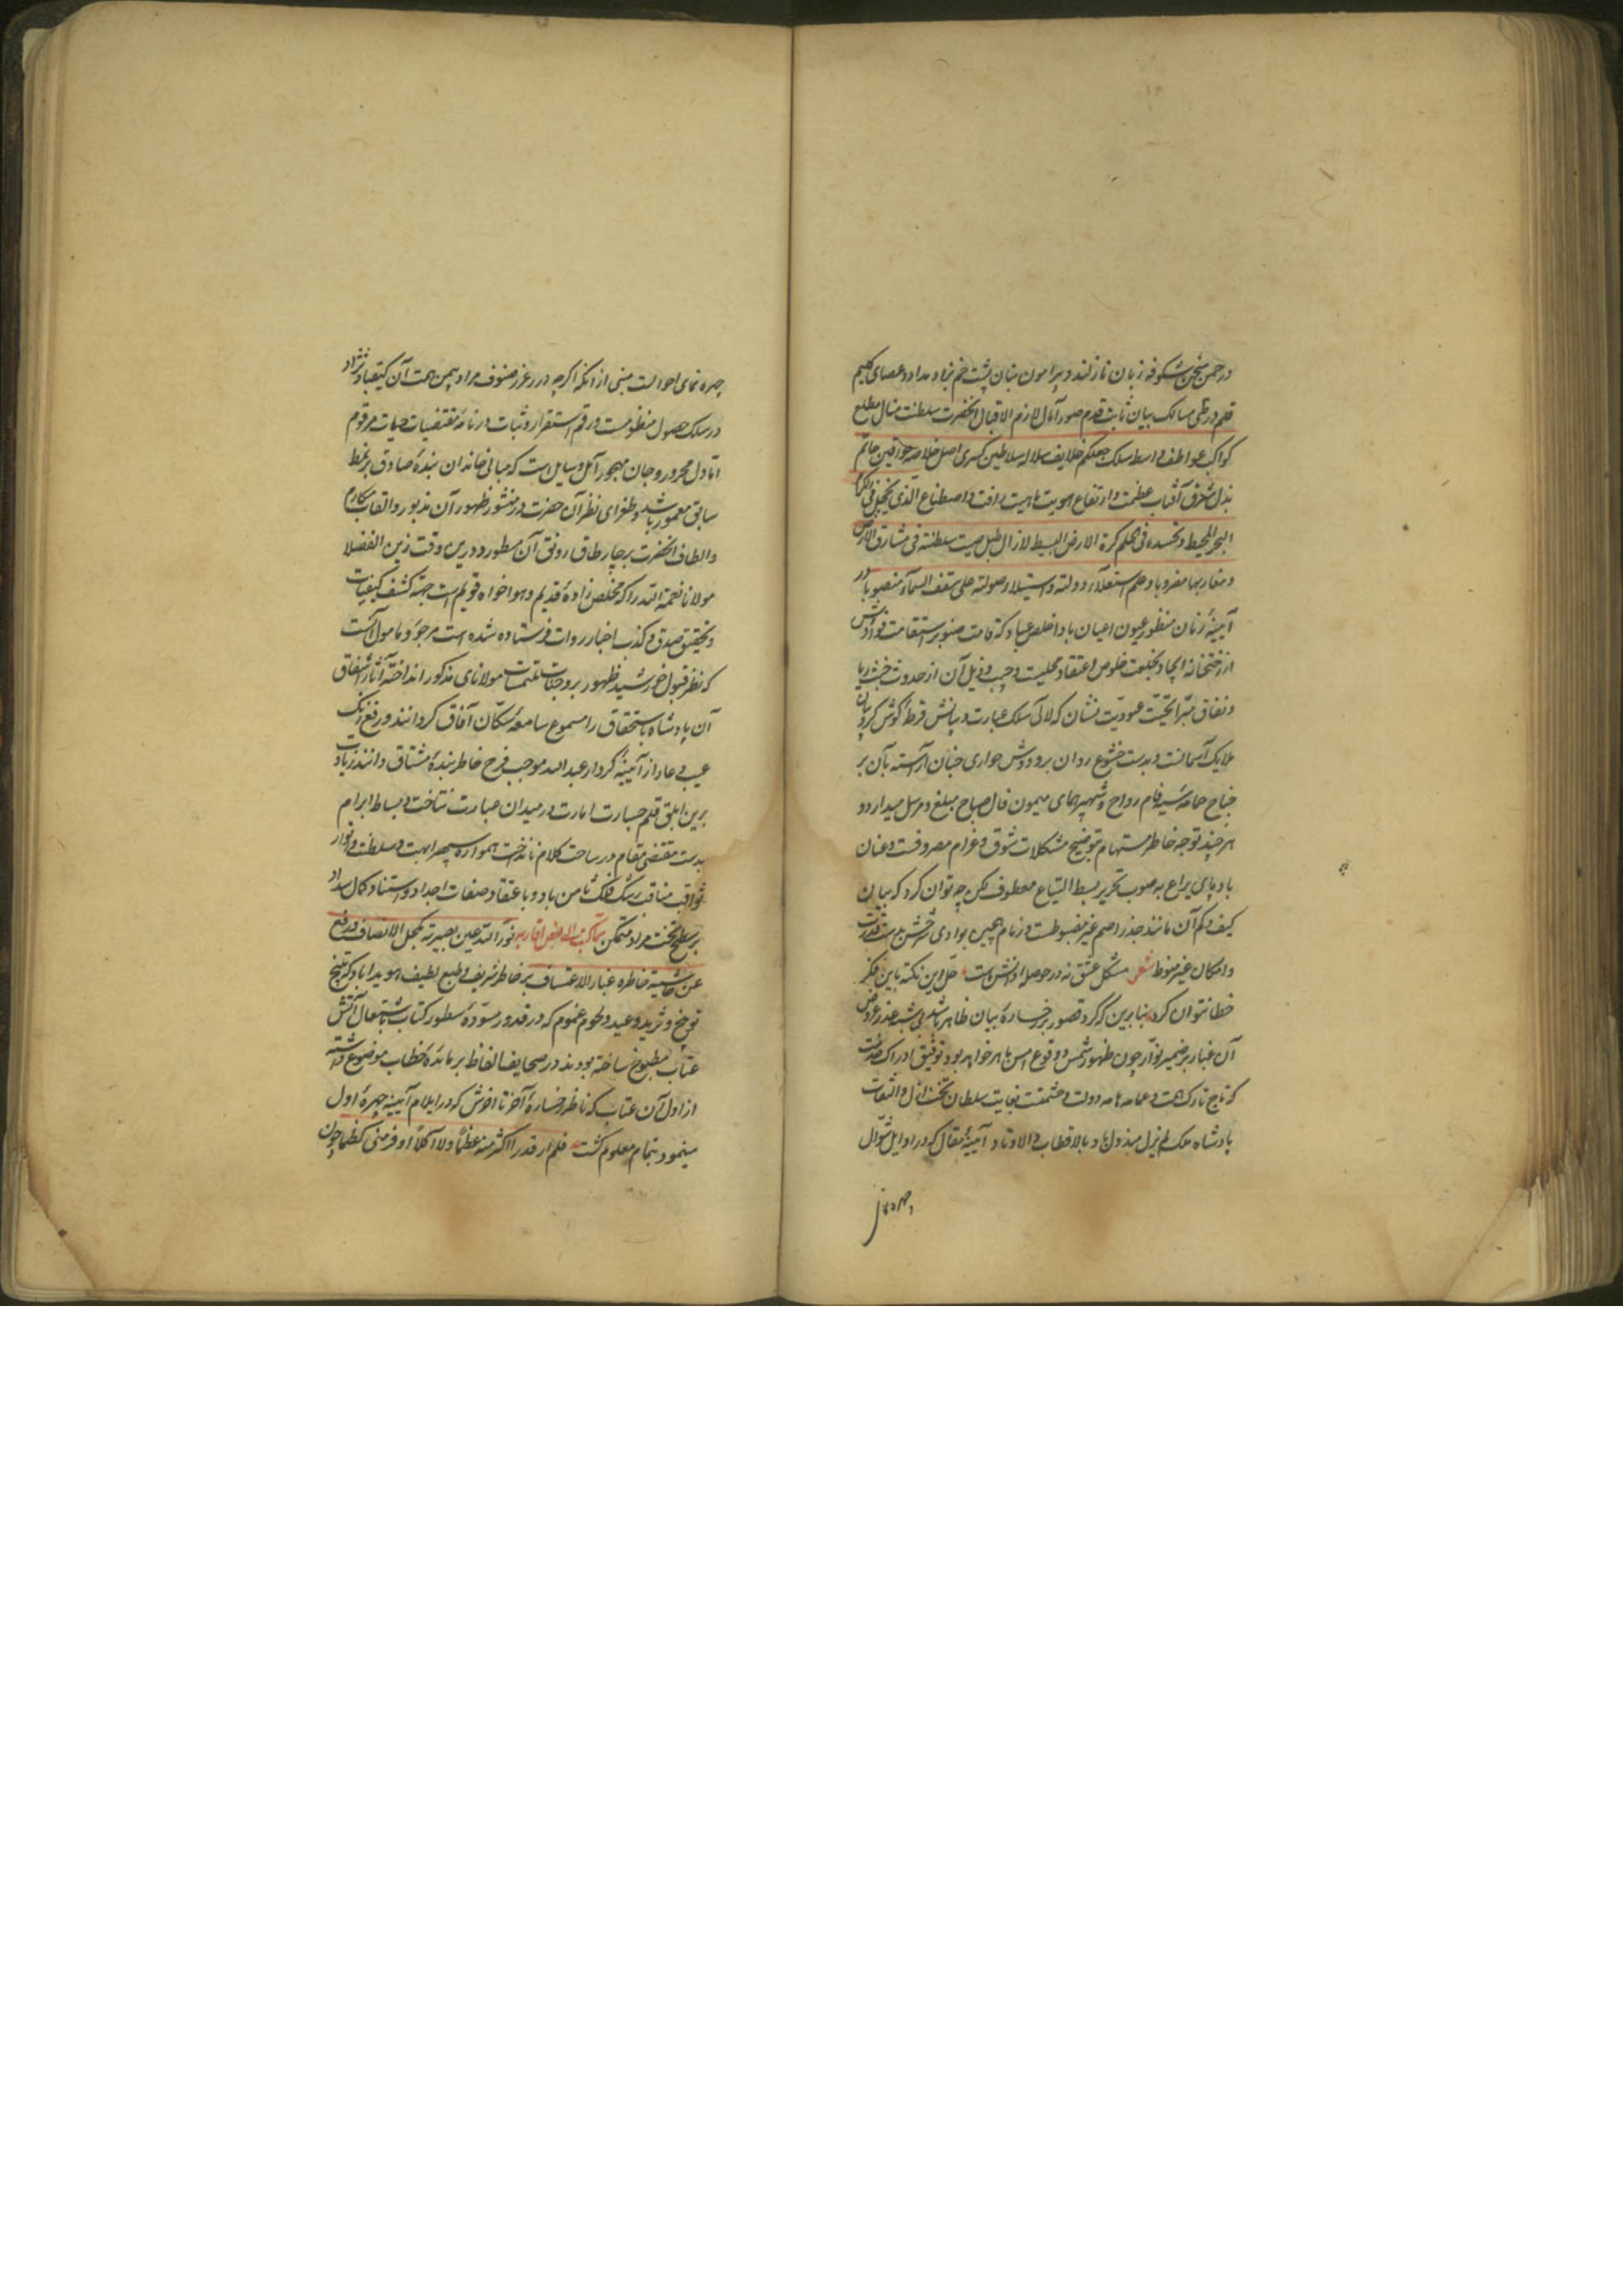 در چمن سخن شکوفه زبان ناز لند و پیرامون بنان پشت خم نهاد و مداد و عصای کلیم
قلم در طی مسالک بیان ثابت قدم صور آمال لازم الاقبال آنحضرت سلطنت منال مطلع
کواکب عواطف و اسط سلک جعلکم خلایف سلاله سلاطین کسری اصل خلاصه خواقین حاتم
بذل شرف آفتاب عظمت و ارتفاع هویت ماهیت رافت و اصطناع الذی یخجل فی الکرم
البحر المحیط و تحسده فی الحلم کرة الارض البسیط لا زال طبل صیت سلطنته فی مشارق الارض
و مغاربها مضروبا و علم استعلاء دولته و استیلاء صولته علی سقف السماء منصوبا در
آیینه زمان منظور عیون اعیان باد اخلص عباد که قامت صنوبر استقامت فوادش
از رختخانه ایجاد بخلعت خلوص اعتقاد محلیست و جیب و ذیل آن از حدوث خبث ریا
و نفاق مبرا تحیت عبودیت نشان که لآلی سلک عبارت و بیانش قرطه گوش کروبیان
ملایک آسمانست و بدست خشوع روان بر و دوش حواری جنان آراسته بآن بر
جناح حمامه سیه فام رواح و شهپر همای میمون فال صباح مبلغ و مرسل میدارد و
هر چند توجه خاطر مستهام بتوضیح مشکلات شوق و غرام مصروفست و عنان
باد پای یراع به صوب تحریر بسط التیاع معطوف لکن چه توان کرد که بیان
کیف و کم آن مانند جذر اصم غیر مضبوطست و زمام پیچیی بوادی شرحش بدست قدرت
و امکان غیر منوط شعر مشکل عشق نه در حوصله دانش ماست حل این نکته باین فکر
خطا نتوان کرد بنابرین که گرد قصور بر رخساره بیان ظاهر باشد بی شبه عذر عروض
آن غبار بر ضمیر انوار چون ظهور شمس و وقوع امس باهر خواهد بود توفیق ادراک خدمت
که تاج تارک همت و عمامه هامه دولت و حشمتست بغایت سلطان تختخانه ازل و التفات
پادشاه ملک لم یزل مبذول باد بالاقطاب و الاوتاد آیینه مقال که در اوایل شوال
چهره نمای
چهره نمای احوالست مبنی از آنکه اگر چه درر غرر صنوف مراد بیمن همت آن کیقباد نژاد
در سلک حصول منظومست و رقم استقرار و ثبات در نامه مقتضیات حیات مرقوم
اما دل محرور و جان مهجور آمل و سایل است که مبانی خاندان بنده صادق بر نمط
سابق معمور باشد و طغرای نظر آن حضرت در منشور ظهور آن مذبور و القاب مکارم
و الطاف آنحضرت بر چار طاق رونق آن مسطور و درین وقت زین الفضلا
مولانا نعمة الله را که مخلص زاده قدیم و هوا خواه قویم است جهة کشف کیفیات
و تحقیق صدق و کذب اخبار روات فرستاده شده است مرجو و مامول آنست
که نظر قبول خورشید ظهور بر وجنات ملتمسات مولانای مذکور انداخته آثار اشفاق
آن پادشاه باستحقاق را مسموع سامعه سکان آفاق گردانند و رفع زنگ
عیب و عار از آیینه کردار عبدالله موجب فرح خاطر بنده مشتاق دانند زیادت
برین ابلق قلم جسارت امارت در میدان عبارت نتاخت و بساط ابرام
بدست مقتضی مقام در ساحت کلام نانداخت همواره سپهر ابهت و سلطنت و انوار
ثواقب مناقب رشک فلک ثامن باد و با عتقاد صفات اجداد و استناد کمال سداد
بر سطح تخت مراد متمکن مما کتب الی بعض اقاربه نور الله عین بصیرته بکحل الانصاف و رفع
عن حاشیة خاطره غبار الاعتساف بر خاطر شریف و طبع لطیف هویدا باد که تلیخ
توبیخ و ثرید وعید و لحوم غموم که در قدور مسوده سطور کتاب باشتعال آتش
عتاب مطبوخ ساخته بودند در صحایف الفاظ بر مائده خطاب موضوع داشته
از اول آن عتاب که ناظر رخساره آخر ناخوش که در ایلام آیینه چهره اول
مینمود بتمام معلوم گشت فلم ار قدرا اکثر منه عظما ولا آکلا اوفر منی کظما چون